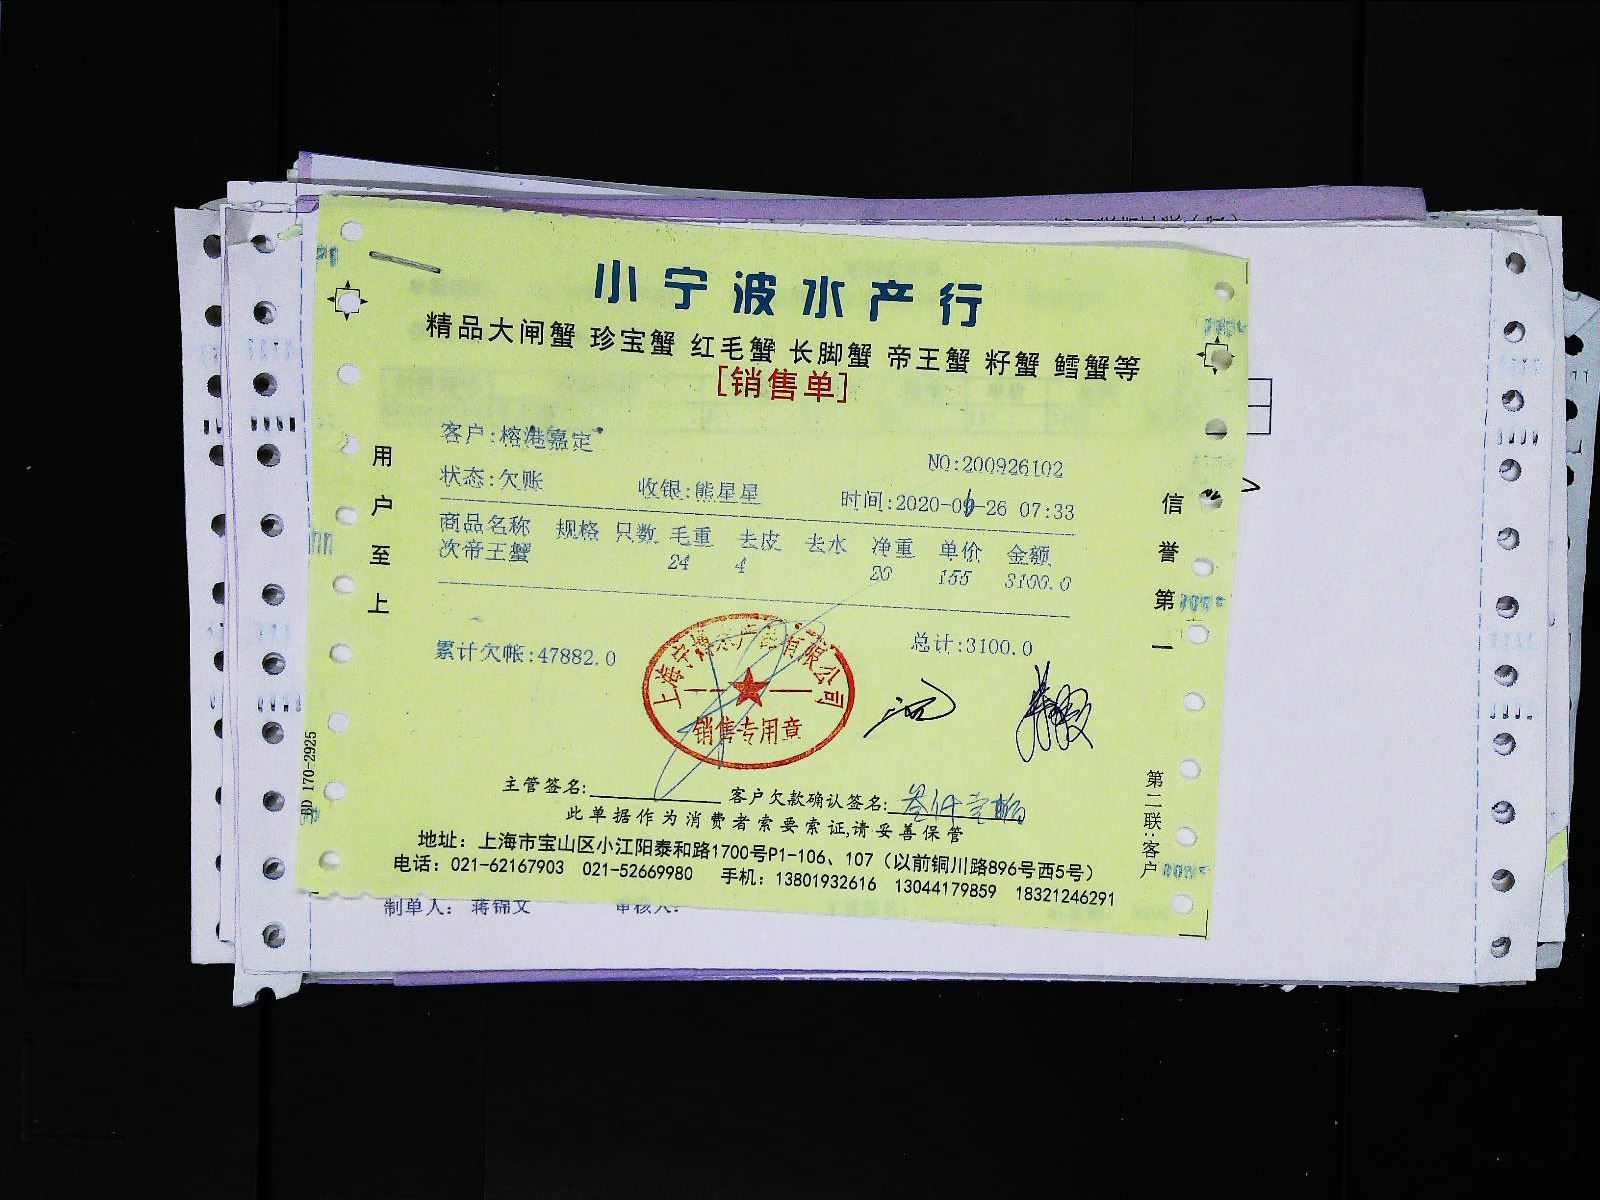 小宁波水产行
精品大闸蟹 珍宝蟹 红毛蟹 长脚蟹 帝王蟹 籽蟹 鳕蟹等
[销售单]
客户:榕港嘉定
NO:200926102
状态:欠账 收银:熊星星 时间:2020-09-26 07:33
商品名称 规格 只数 毛重 去皮 去水 净重 单价 金额
次帝王蟹 24 4 20 155 3100.0
累计欠帐:47882.0 总计:3100.0
销售专用章
主管签名: 客户欠款确认签名:
此单据作为消费者索要索证,请妥善保管
地址：上海市宝山区小江阳泰和路1700号P1-106、107（以前铜川路896号西5号）
电话：021-62167903 021-52669980 手机：13801932616 13044179859 18321246291
用户至上
信誉第一
第二联:客户
BD 170-2925
制单人： 蒋锦文 审核人: